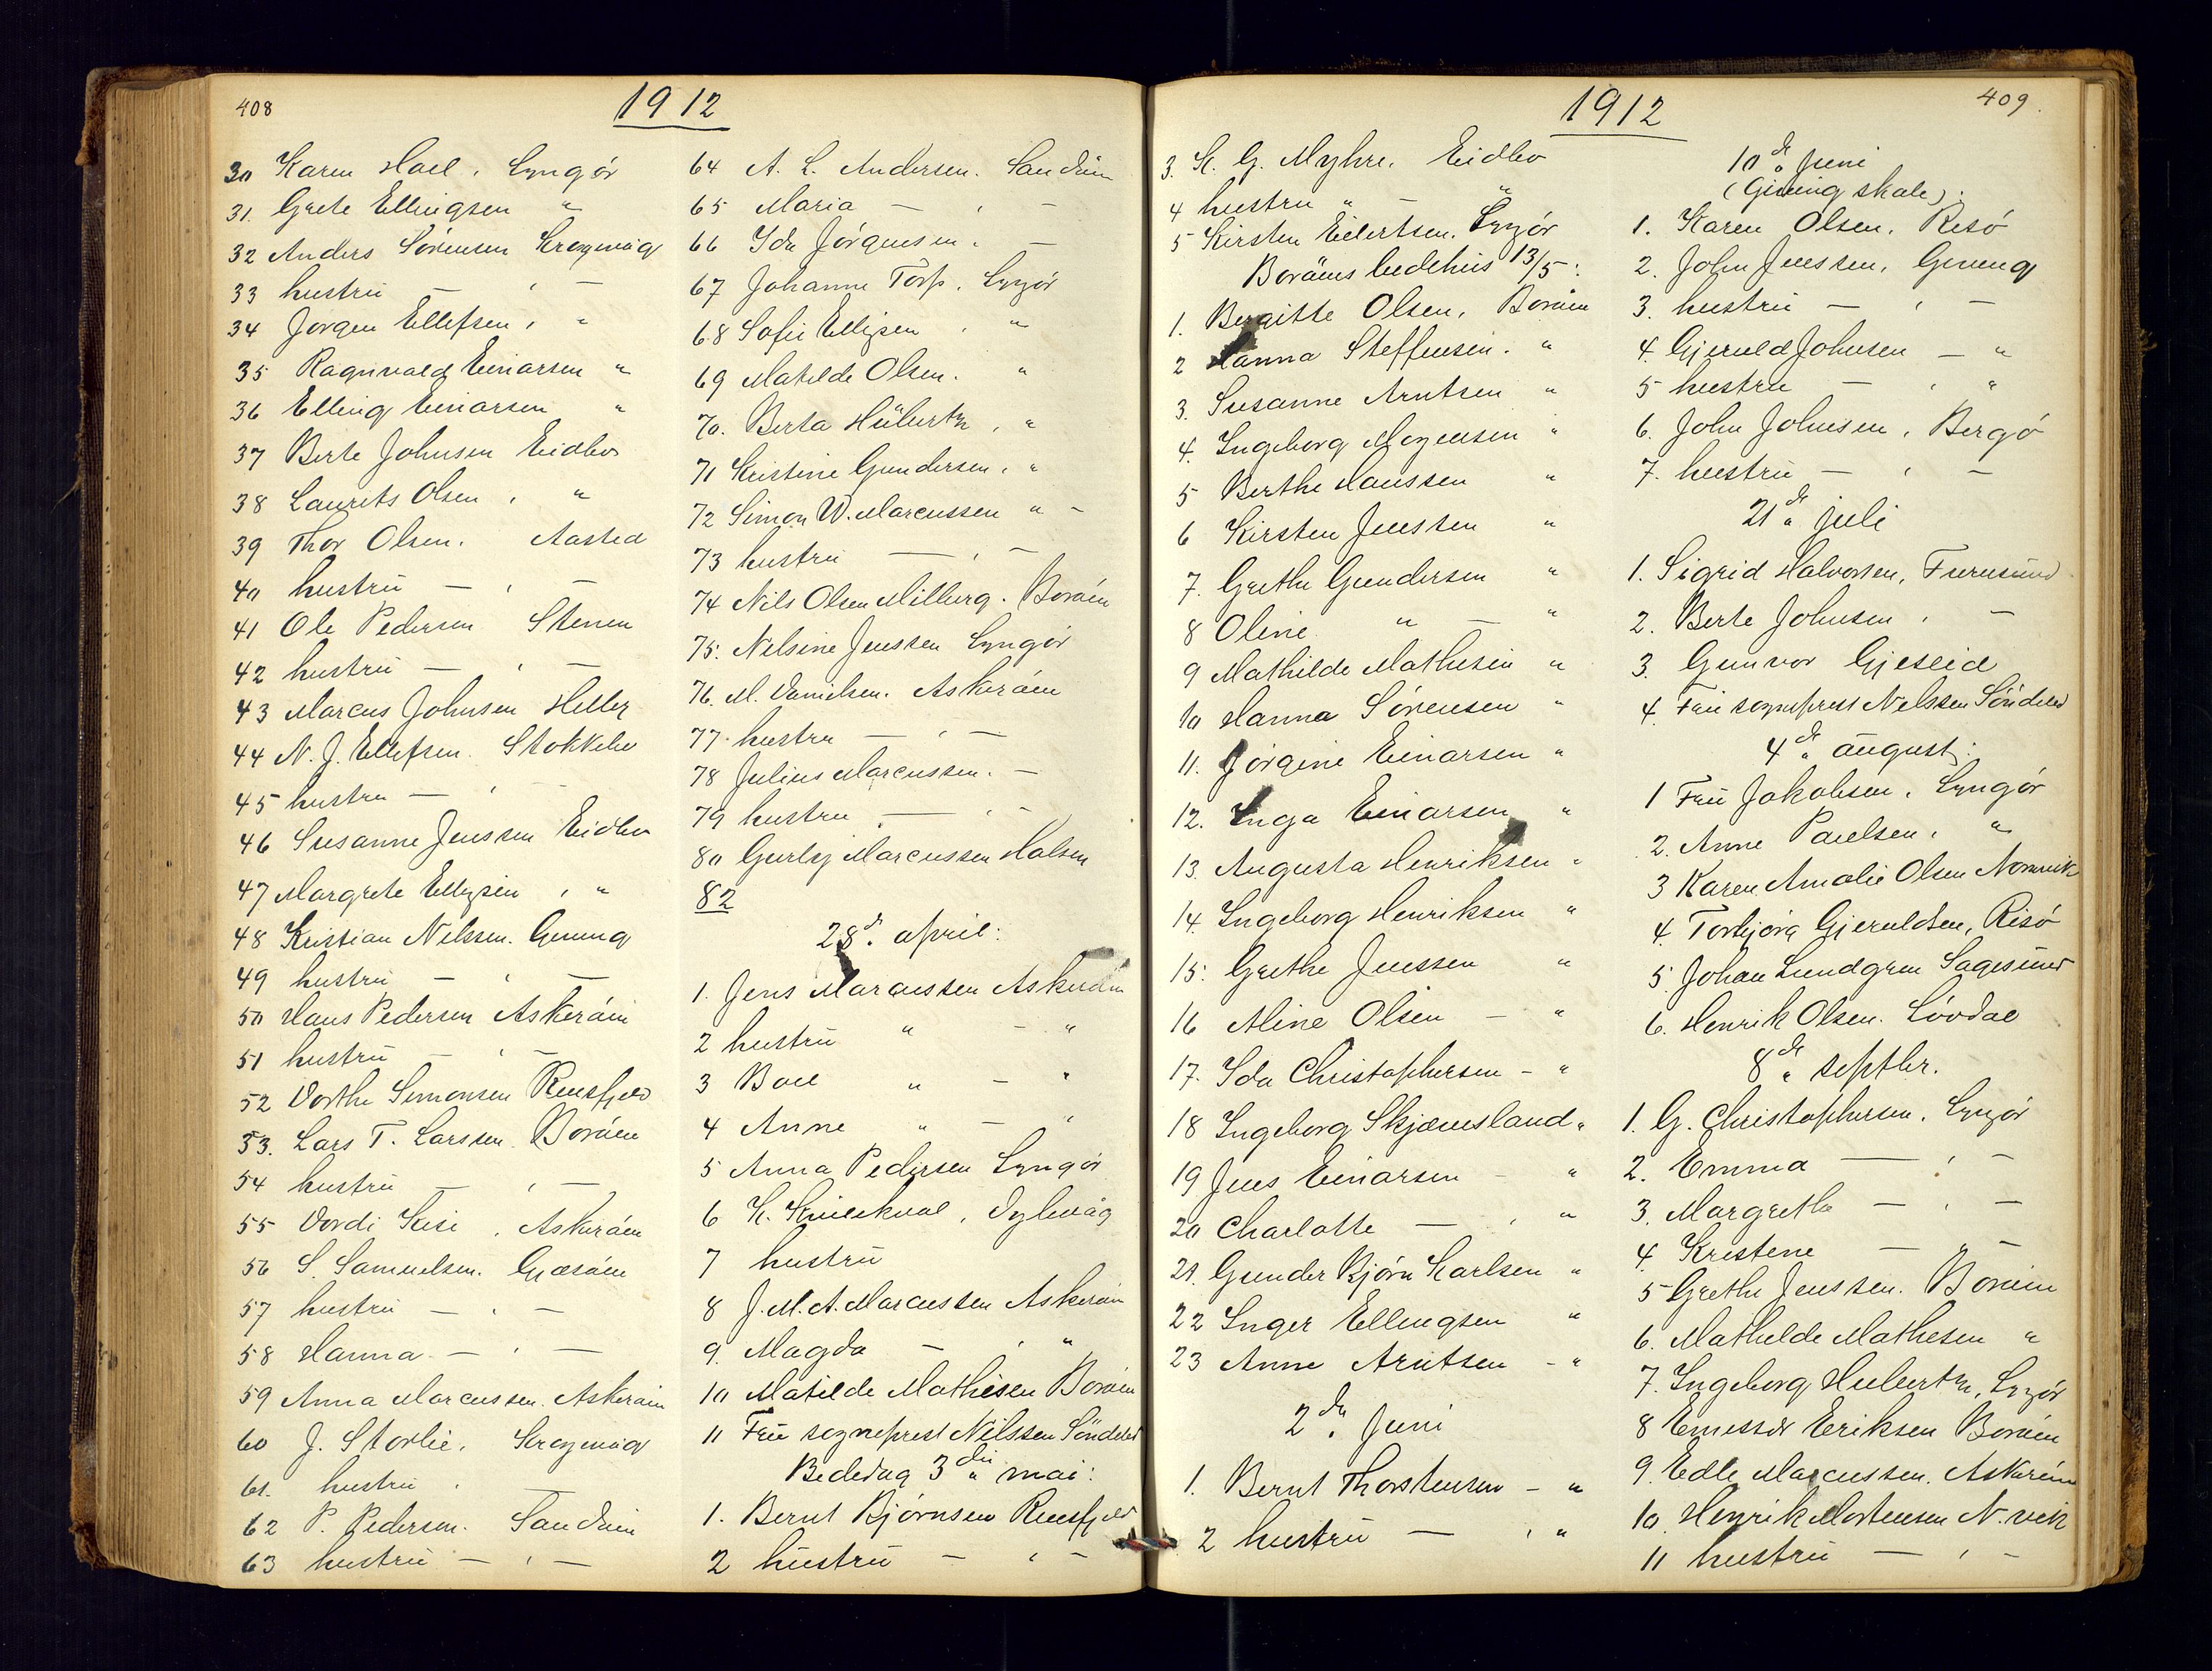 408
1912
30 Karen Hoel, Lyngør
31. Grete Ellingsen "
32 Anders Sörensen Krogevåg
33 hustru — , —
34 Jørgen Ellefsen , "
35 Ragnvald Einarsen "
36 Elling Einarsen "
37 Berte Johnsen Eidbo
38 Laurits Olsen , "
39 Thor Olsen. Aasted
40 hustru — , —
41 Ole Pedersen Stenen
42 hustru — , —
43 Marcus Johnsen Heller
44 N. J. Ellefsen. Stokkebo
45 hustru — ,
46 Susanne Jenssen Eidbo
47 Margrete Ellingsen , "
48 Kristian Nilssen. Gjeving
49 hustru — , —
50 Hans Pedersen Askeröen
51 hustru — , —
52 Dorthe Simonsen Rensfjeld
53. Lars T. Larssen Boröen
54 hustru — , —
55 Vordi , Askeröen
56 S. Samuelsen.
57 hustru — , —
58 Hanna — , —
59 Anna Marcussen. Askeröen
60 J. Storlie, Krogevåg
61. hustru ,
62 P. Pedersen. Sandöen
63 hustru — , —
64 A. L. Andersen. Sandöen
65 Maria — , —
66 Ida Jørgensen , —
67 Johanne Torp. Lyngør
68 Sofie Ellingsen , "
69 Matilde Olsen. "
70. Berta Hübertz , "
71 Kristine Gundersen , "
72 Simon W. Marcussen " -
73 hustru — , —
74 Nils Olsen Milberg. Boröen
75. Nilsine Jenssen Lyngør
76. M. Danielsen. Askeröen
77. hustru — , —
78 Julius Marcussen. —
79 hustru , — , -
80 Gurly Marcussen Holsen
82
28de april:
1. Jens Marcussen Askeröen
2 hustru " — "
3 Boel " — "
4 Anne " — "
5 Anna Pedersen Lyngør
6 K. , Dybvåg
7 hustru
8 J. M. A. Marcussen Askeröen
9. Magda — , "
10 Matilde Mathisen Boröen
11 Fru sogneprest Nilssen Söndeled
Bededag 3die mai:
1. Bernt Bjørnsen Rensfjeld
2 hustru — , —
1912
409.
3. K. G. Myhre. Eidbo
4 hustru " — "
5 Kirsten Eilertsen. Lyngør
Boröens bedehus 13/5:
1. Bergitte Olsen, Boröen
2 Hanna Steffensen. "
3. Susanne Arntsen "
4. Ingeborg Mogensen "
5 Berthe Hanssen "
6 Kirsten Jenssen "
7. Grethe Gundersen "
8 Oline " — "
9 Mathilde Mathisen "
10 Hanna Sörensen "
11. Jörgine Einarsen "
12. Inga Einarsen "
13. Augusta Henriksen "
14. Ingeborg Henriksen "
15. Grethe Jenssen "
16 Aline Olsen — "
17. Ida Christophersen - "
18 Ingeborg Skjævesland "
19 Jens Einarsen - "
20 Charlotte — , "
21. Gunder Bjørn Karlsen "
22 Inger Ellingsen "
23 Anne Arntsen - "
2den Juni
1. Bernt Thorstensen — "
2 hustru — , "
10de Juni
(Gjeving skole):
1. Karen Olsen, Risö
2. John Jenssen, Gjeving
3. hustru — , —
4. Gjeruld Johnsen — "
5 hustru — , "
6. John Johnsen, Bergö
7. hustru — , —
21de juli
1. Sigrid Halvorsen, Furusund
2. Berte Johnsen , —
3. Gunvor Gjeseid
4. Fru sogneprest Nilssen Söndeled
4de august:
1 Fru Jakobsen, Lyngør
2. Anne Paulsen , "
3 Karen Amalie Olsen Narrevik
4. Torbjörg Gjeruldsen, Risö
5. Johan Lundgren Sagesund
6. Henrik Olsen. Lövdal
8de septbr.
1. G. Christophersen. Lyngör
2. Emma — , —
3. Margrethe — , —
4. Kristene — " —
5 Grethe Jenssen. Boröen
6. Mathilde Mathesen "
7. Ingeborg Hubertz, Lyngör
8 Eriksen Boröen
9. Edle Marcussen. Askeröen
10. Henrik Mortensen N.vik
11 hustru — , —